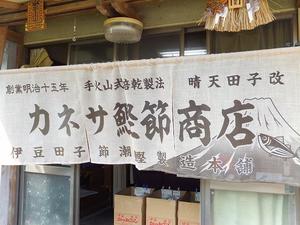 創業明治十五年 手火山式焙乾製法 晴天田子改
カネサ鰹節商店
伊豆田子節潮鰹製造本舗